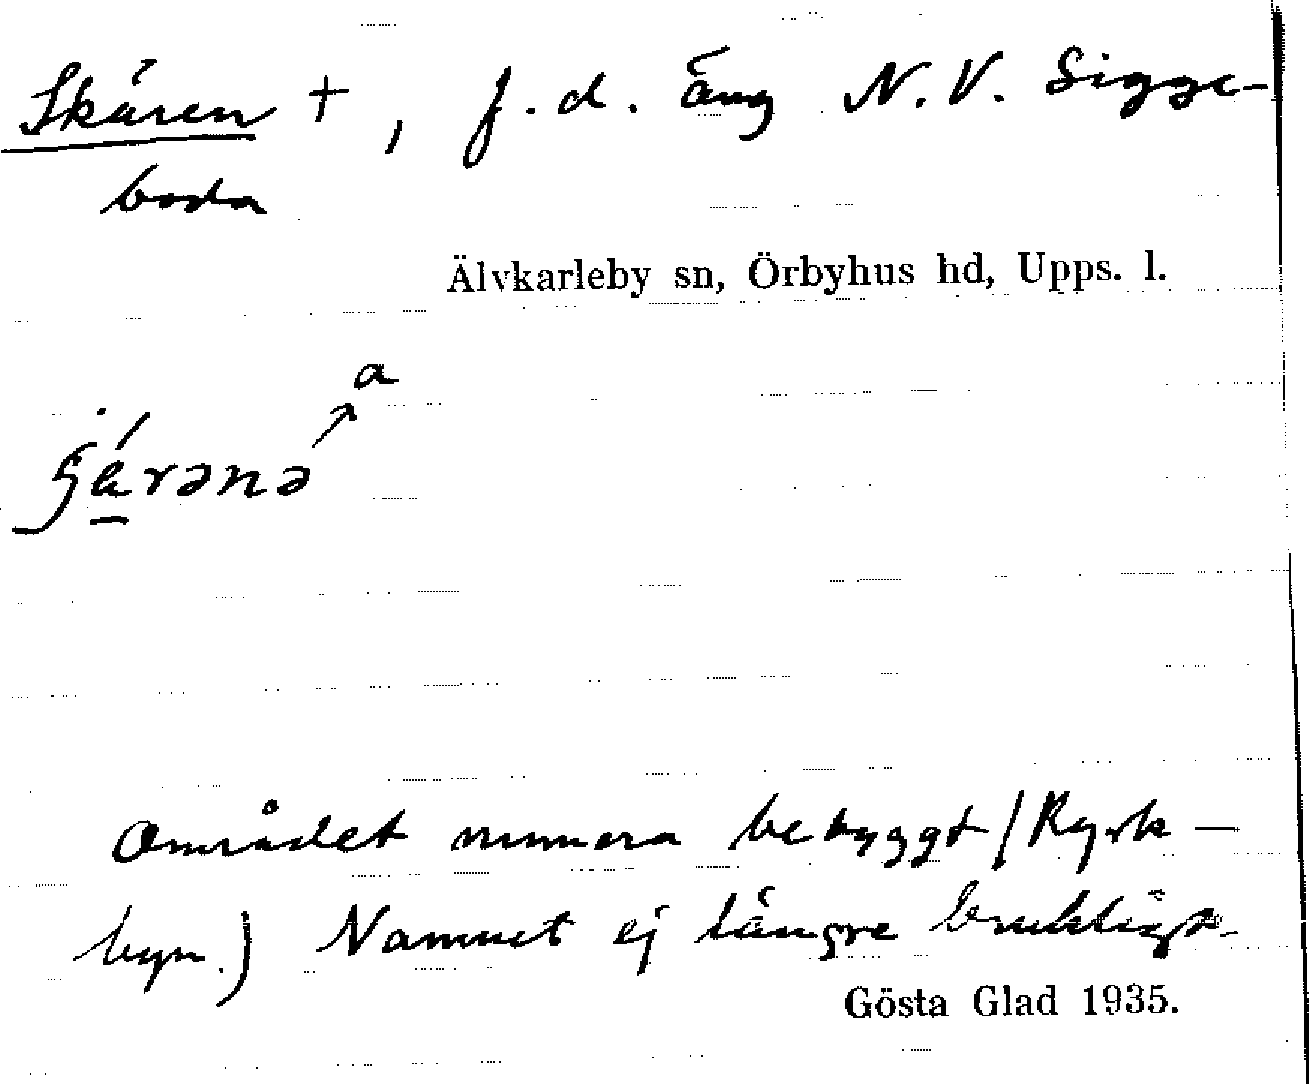 Skären +, f. d. äng N. V. Sigge-
boda
Älvkarleby sn, Örbyhus hd, Upps. l.
a
Området numera bebyggt (Kyrk-
byn.) Namnet ej längre brukligt.
Gösta Glad 1935.